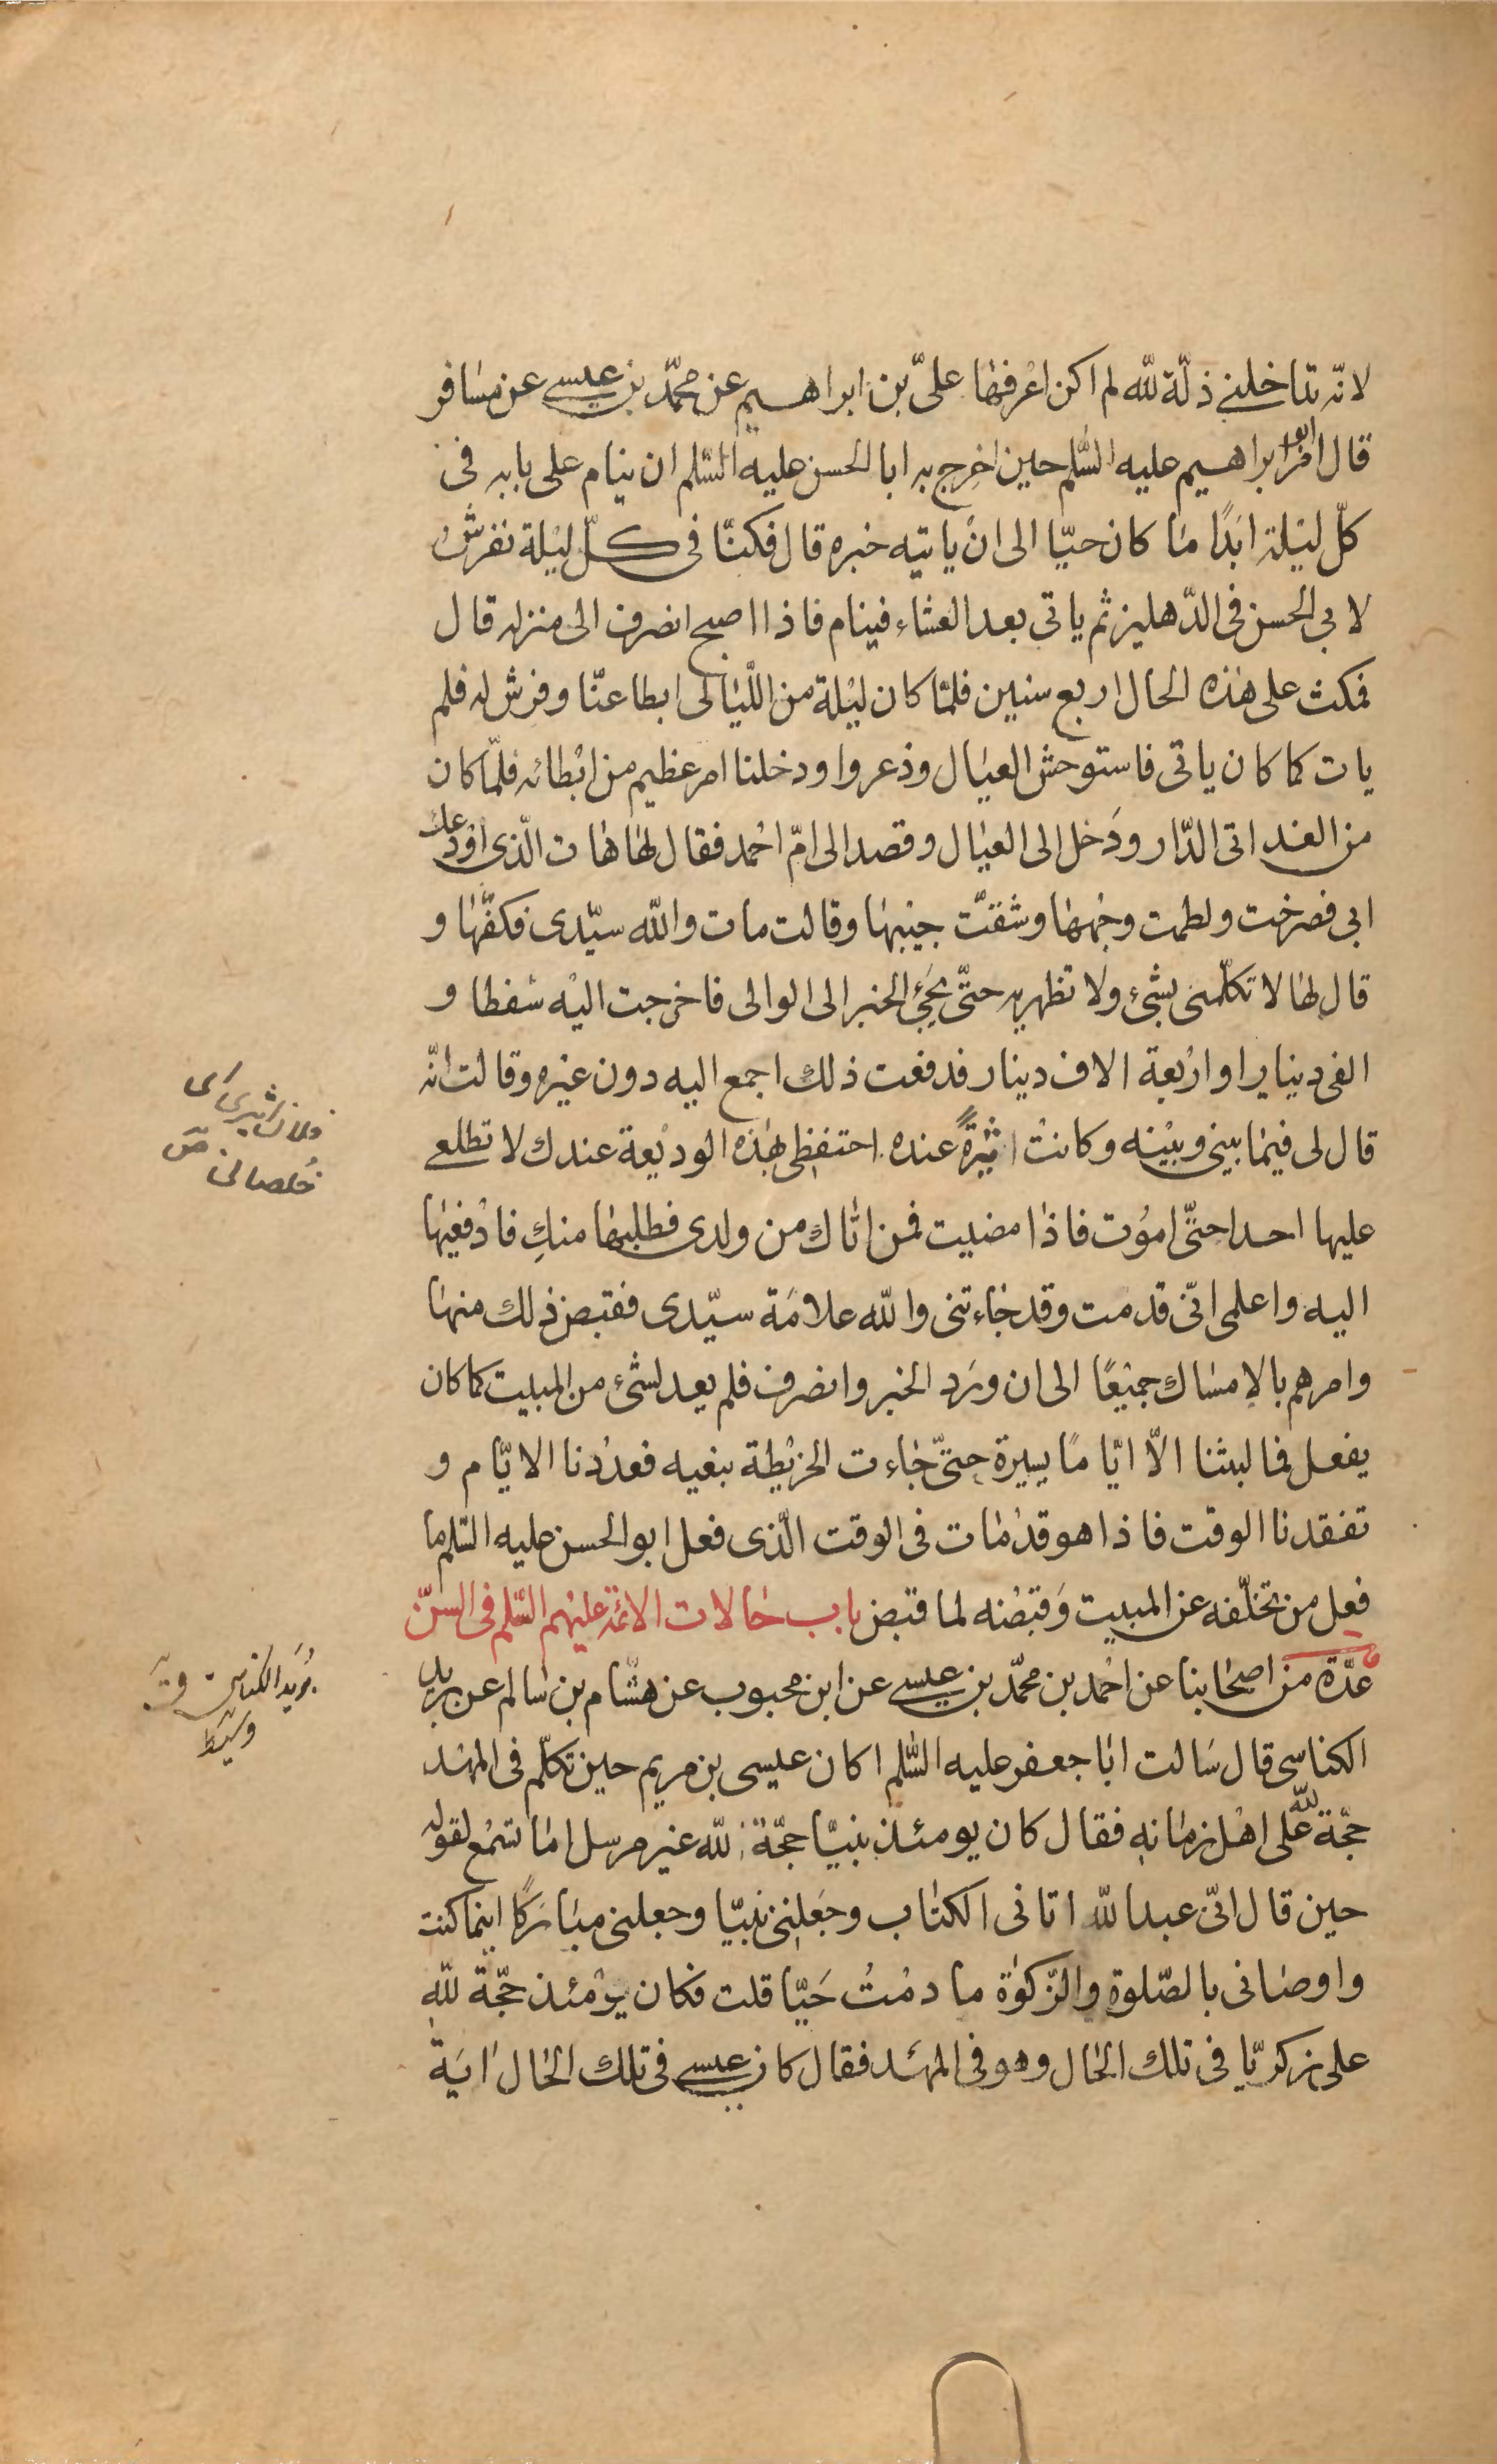 لانّه تداخلنى ذلّة للّه لم اكن اعرفها علىّ بن ابراهيم عن محمّد بن عيسى عن مسافر
قال امر ابو ابراهيم عليه السّلم حين اخرج به ابا الحسن عليه السّلم ان ينام على بابه فى
كلّ ليلة ابدًا ما كان حيّا الى ان ياتيه خبره قال فكنّا فى كلّ ليلة نفرش
لابى الحسن فى الدّهليز ثم ياتى بعد العشاء فينام فاذا اصبح انصرف الى منزله قال
فمكث على هذه الحال اربع سنين فلمّا كان ليلة من اللّيالى ابطا عنّا وفرش له فلم
يات كما كان ياتى فاستوحش العيال وذعروا ودخلنا امر عظيم من ابطائه فلمّا كان
من الغد اتى الدّار ودخل الى العيال وقصد الى امّ احمد فقال لها هات الّذى اودعك
ابى فصرخت ولطمت وجهها وشقّت جيبها وقالت مات واللّه سيّدى فكفّها و
قال لها لا تكلّمى بشىء ولا تظهريه حتّى يجىء الخبر الى الوالى فاخرجت اليه سفطا و
الفى دينارا و اربعة الاف دينار فدفعت ذلك اجمع اليه دون غيره وقالت انّه
قال لى فيما بينى وبينه وكانت اثيرةً عنده احتفظى بهذه الوديعة عندك لا تطلعى
عليها احدا حتّى اموت فاذا مضيت فمن اتاك من ولدى فطلبها منكِ فادفعيها
اليه واعلمى انّى قد مت وقد جاءتنى واللّه علامة سيّدى فقبض ذلك منها
وامرهم بالامساك جميعًا الى ان ورد الخبر وانصرف فلم يعد لشىء من المبيت كما كان
يفعل فما لبثنا الّا ايّامًا يسيرة حتّى جاءت الخريطة بنعيه فعددنا الايّام و
تفقدنا الوقت فاذا هو قد مات فى الوقت الّذى فعل ابو الحسن عليه السّلم ما
فعل من تخلّفه عن المبيت وقبضه لما قبض باب حالات الائمّة عليهم السّلم فى السنّ
عدّة من اصحابنا عن احمد بن محمّد بن عيسى عن ابن محبوب عن هشام بن سالم عن بريد
الكناسى قال سالت ابا جعفر عليه السّلم اكان عيسى بن مريم حين تكلّم فى المهد
حجّة للّه على اهل زمانه فقال كان يومئذ نبيّا حجّة للّه غير مرسل اما تسمع لقوله
حين قال انّى عبد اللّه اتانى الكتاب وجعلنى نبيّا وجعلنى مباركًا اينما كنت
واوصانى بالصّلوة والزّكوة ما دمتُ حَيّا قلت فكان يومئذ حجّة للّه
على زكريّا فى تلك الحال وهو فى المهد فقال كان عيسى فى تلك الحال اية
فلان اثيرى اى
خلصانى ص
بريد الكناسى